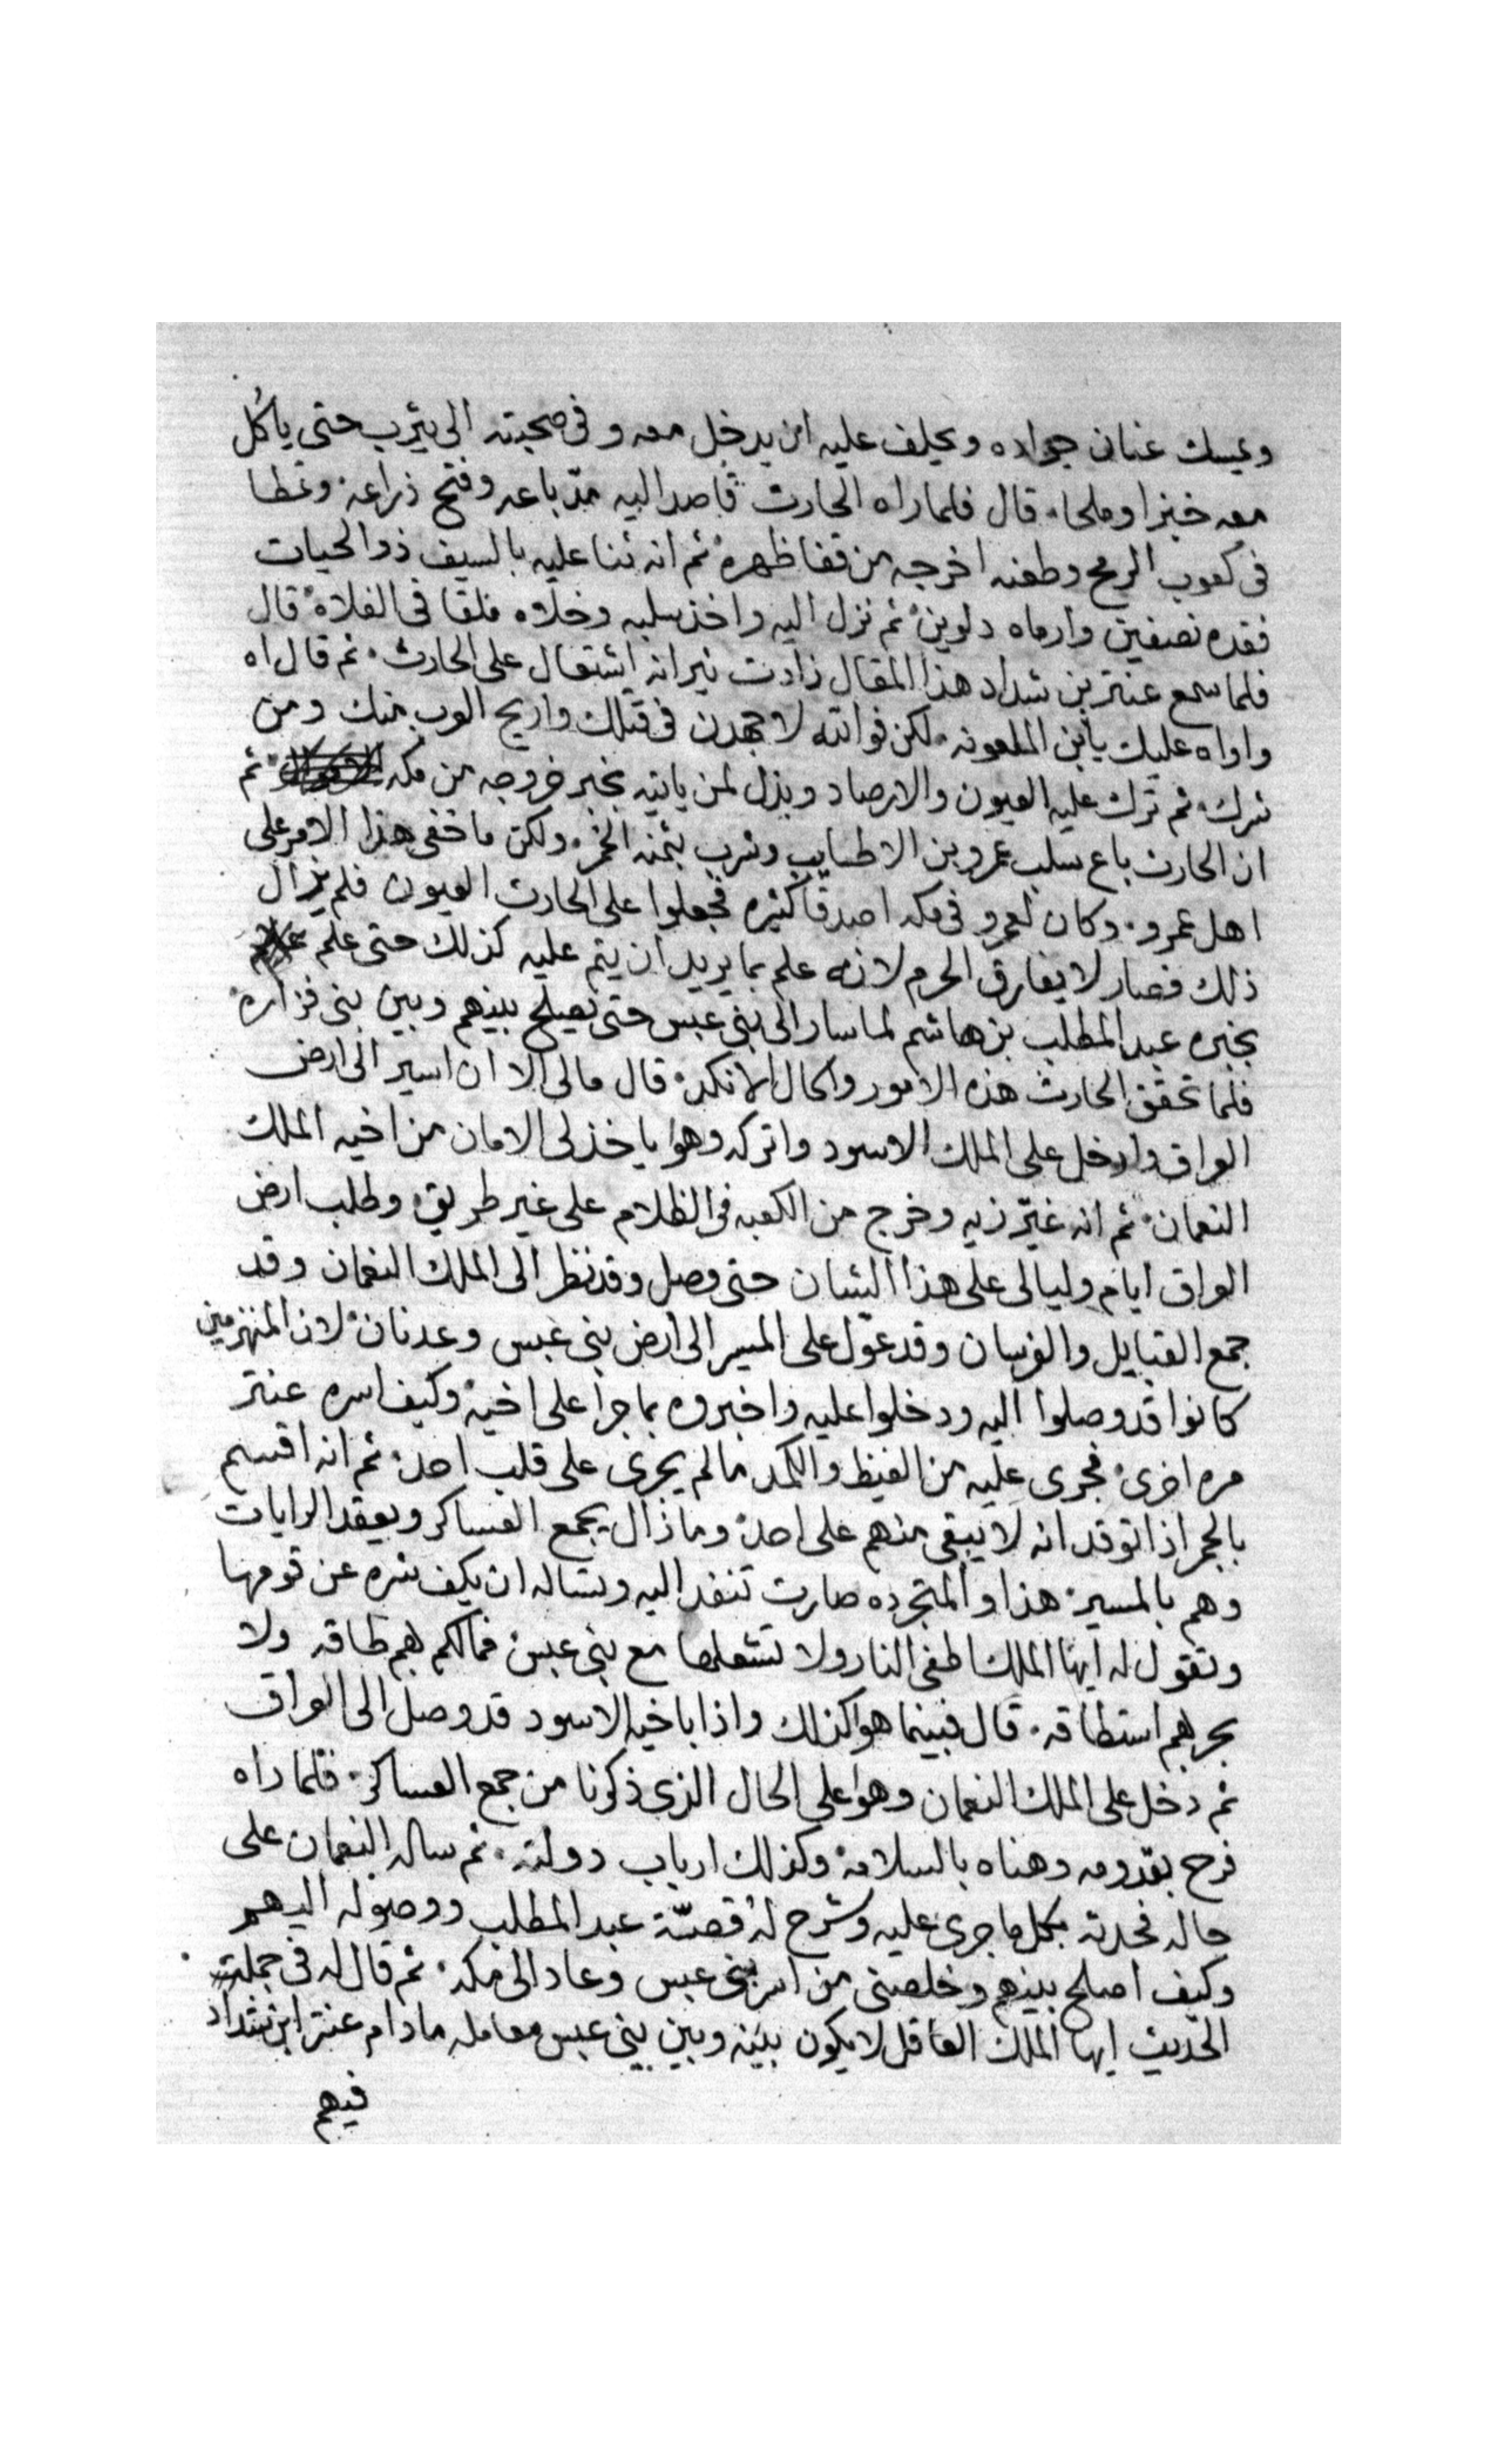 ويمسك عنان جواده ويحلف عليه ان يدخل معه وفى صحبته الى يثرب حتى ياكل
معه خبزا وملحا. قال فلما راه الحارث قاصدا اليه مدّ باعه وفتح ذراعه. وغطا
فى كعوب الرمح وطعنه اخرجه من قفا ظهره. ثم انه ثنا عليه بالسيف ذو الحيات
فقده نصفين وارماه دلوين. ثم نزل اليه واخذ سلبه وخلاه ملقا فى الفلاة. قال
فلما سمع عنتر بن شداد هذا المقال زادت نيرانه اشتعال على الحارث. ثم قال اه
واواه عليك يا بن الملعونه. لكن فوالله لاجهدن فى قتلك واريح العرب منك ومن
شرك. ثم ترك عليه العيون والارصاد وبذل لمن ياتيه بخبر خروجه من مكه ثم
ان الحارث باع سلب عمرو بن الاطنايب وشرب بثمنه الخمر. ولكن ما خفى هذا الامر على
اهل عمرو. وكان لعمرو فى مكه اصدقا كثيره فجعلوا على الحارث العيون فلم يزال
ذلك فصار لا يفارق الحرم لانه علم بما يريد ان يتم عليه كذلك حتى علم
بخبره عبد المطلب بن هاشم لما سار الى بنى عبس حتى يصلح بينهم وبين بنى فزاره
فلما تحقق الحارث هذه الامور والحال الانكد. قال مالى الا ان اسير الى ارض
العراق وادخل على الملك الاسود واتركه وهوا ياخذ لى الامان من اخيه الملك
النعمان. ثم انه غيّر زيه وخرج من الكعبه فى الظلام على غير طريق. وطلب ارض
العراق ايام وليالى على هذا الشان حتى وصل وقد نظر الى الملك النعمان وقد
جمع القبايل والفرسان وقد عوّل على المسير الى ارض بنى عبس وعدنان. لان المنهزمين
كانوا قد وصلوا اليه ودخلوا عليه واخبروه بما جرا على اخيه. وكيف اسره عنتر
مره اخرى. فجرى عليه من الغيظ والكمد ما لم يجرى على قلب احد. ثم انه اقسم
بالجمر اذا اتوقد انه لا يبقى منهم على احد. وما زال يجمع العساكر ويعقد الرايات
وهم بالمسير. هذا والمتجرده صارت تنفد اليه وتساله ان يكف شره عن قومها
وتقول له ايها الملك اطفى النار ولا تشعلها مع بنى عبس. فمالكم بهم طاقه ولا
بحربهم استطاقه. قال فبينما هوا كذلك واذا باخيه الاسود قد وصل الى العراق
ثم دخل على الملك النعمان وهوا على الحال الذى ذكرنا من جمع العساكر. فلما راه
فرح بقدومه وهناه بالسلامه. وكذلك ارباب دولته. ثم ساله النعمان على
حاله فحدثه بكل ما جرى عليه وشرح له قصّة عبد المطلب ووصوله اليهم
وكيف اصلح بينهم وخلصنى من اسر بنى عبس وعاد الى مكه. ثم قال له فى جملت
الحديث ايها الملك العاقل لا يكون بينه وبين بنى عبس معامله ما دام عنتر ابن شداد
فيهم